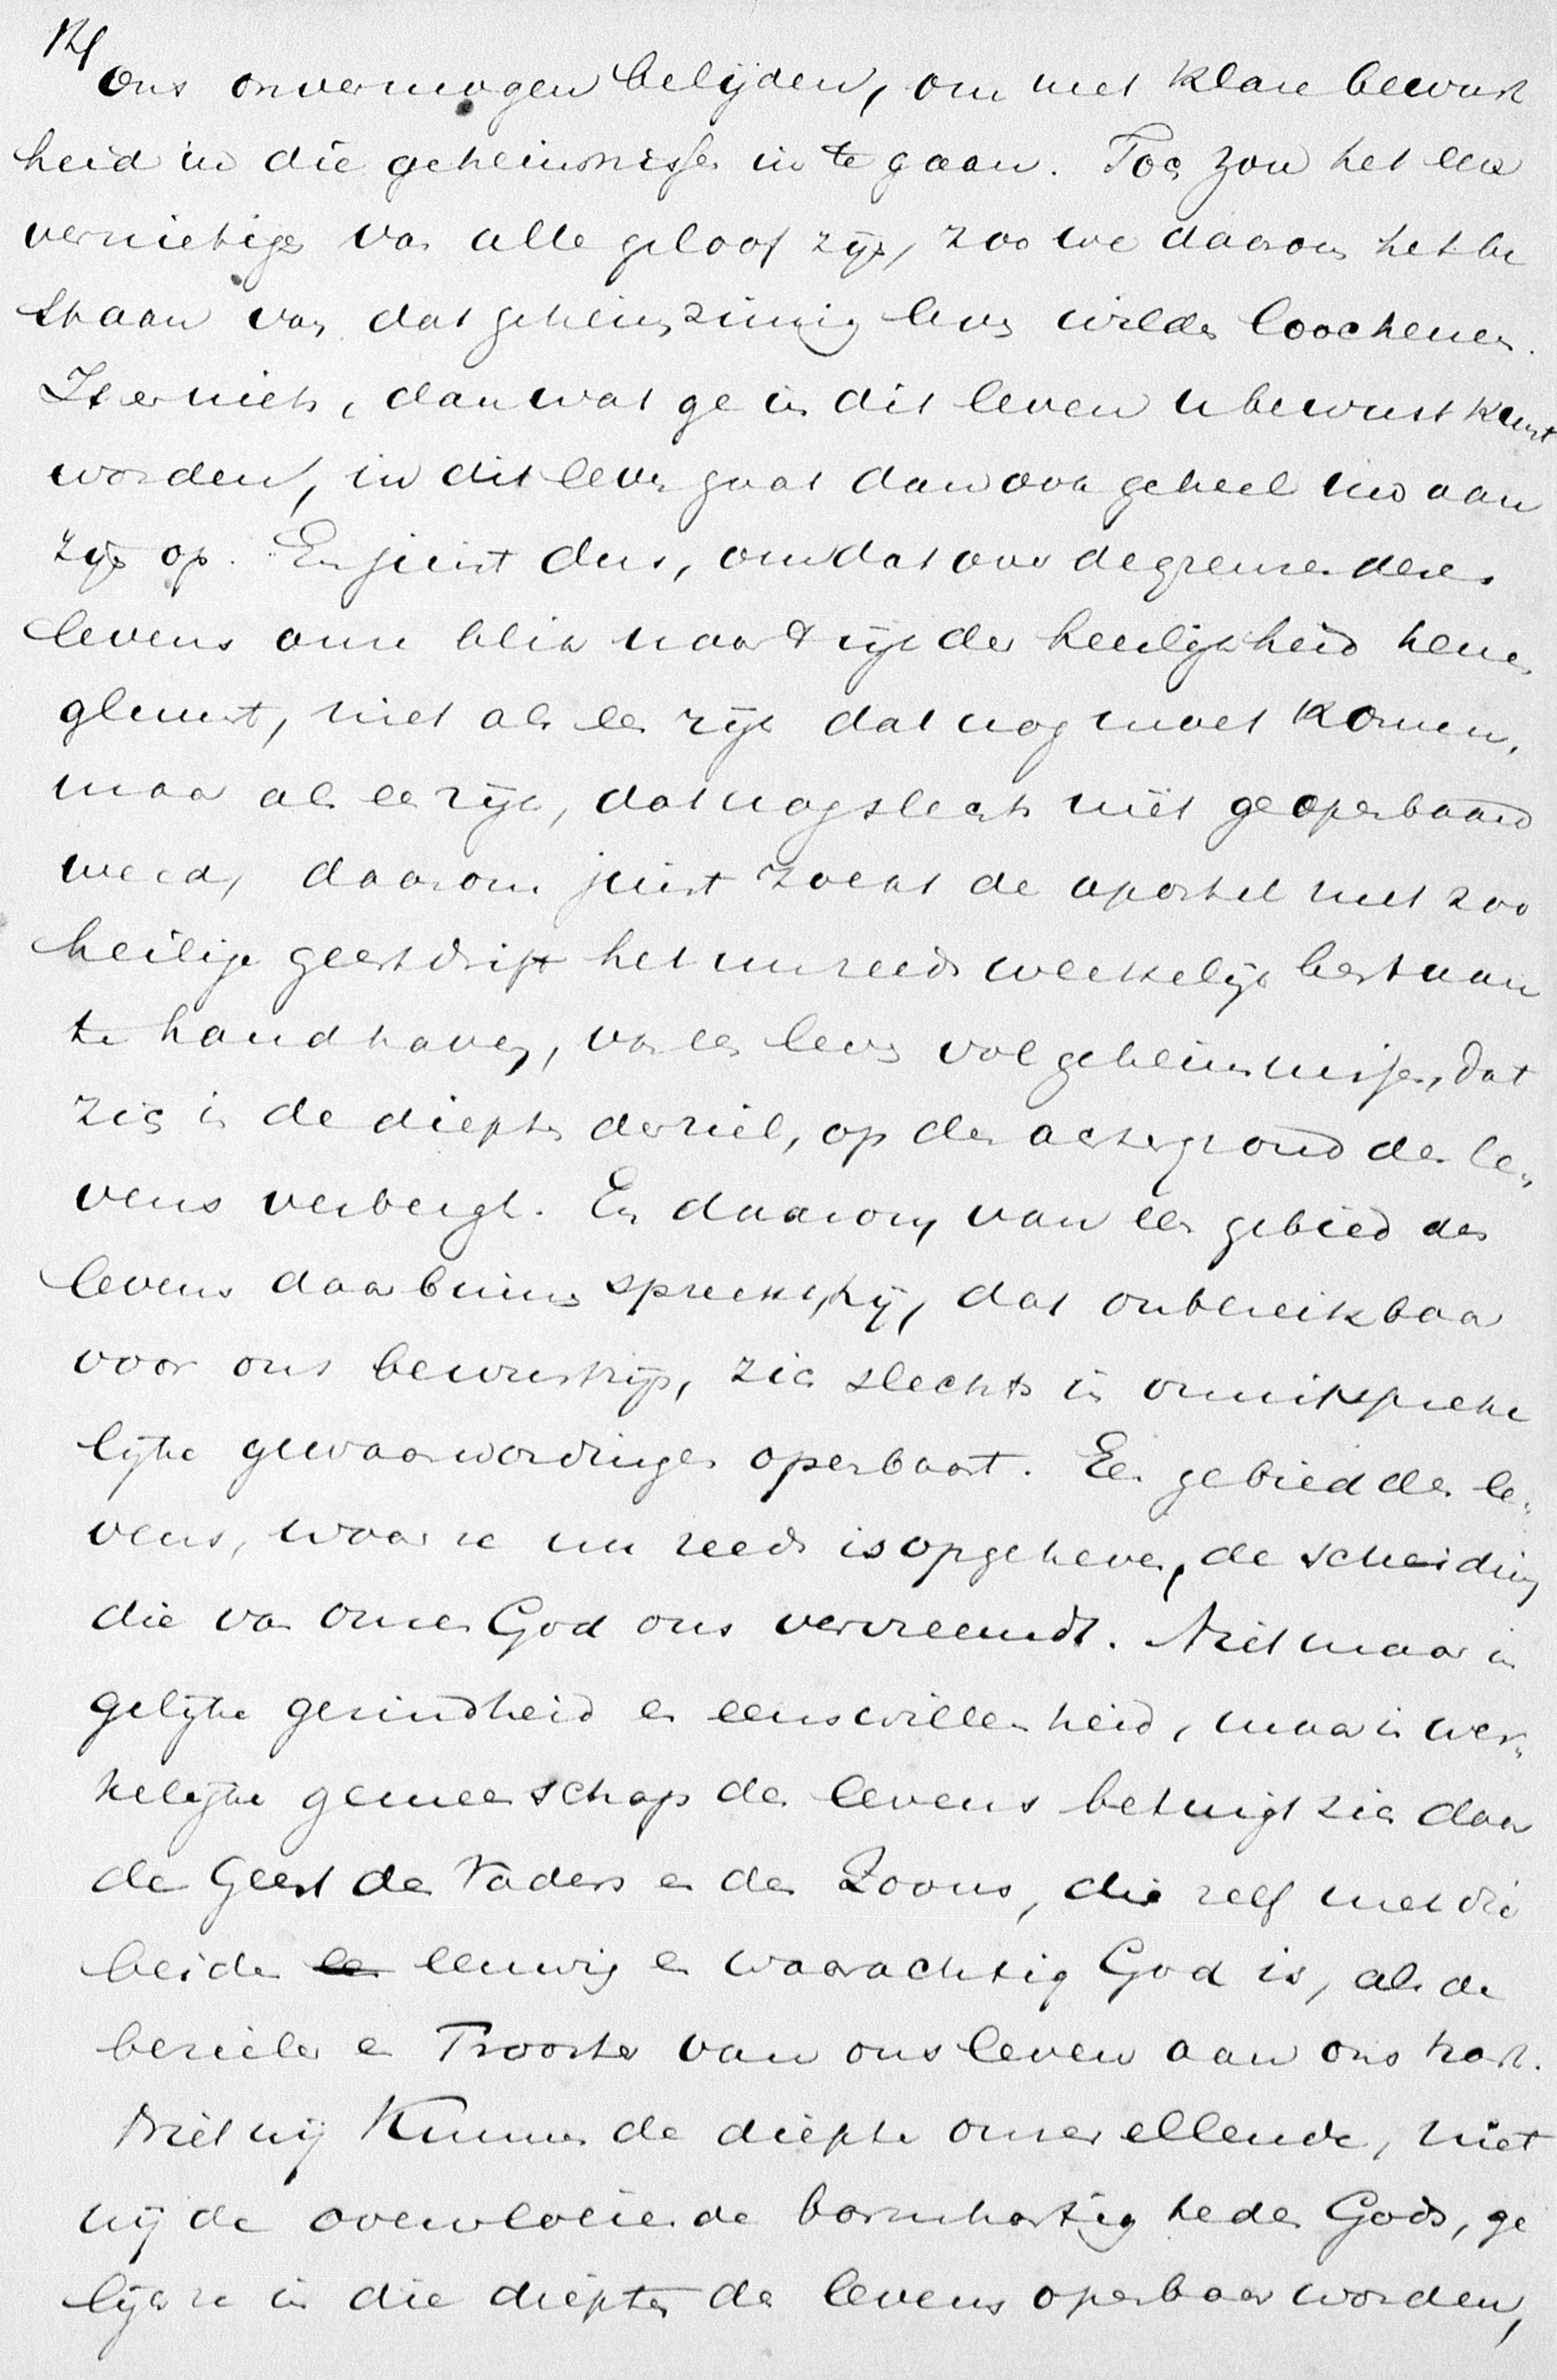 ons onvermogen belijden, om met klare bewust
heid in die geheimnissen in te gaan. Toch zou het een
vernietigen van alle geloof zijn, zoo we daarom het be
staan van dat geheimzinnig leven wilden loochenen.
Is er niets, dan wat ge in dit leven u bewust kunt
worden, in dit leven gaat dan ook geheel uw aan
zijn op. En juist dus, omdat over de grenzen dezes
levens onze blik naar 't rijk der heerlijkheid henen
gluurt, niet als een rijk dat nog moet komen,
maar als een rijk, dat nog slechts niet geopenbaard
werd, daarom juist zoekt de apostel met zoo
heilige geestdrift het nu reeds werkelijk bestaan
te handhaven, van een leven vol geheimnissen, dat
zich in de diepten der ziel, op den achtergrond des le-
vens verbergt. En daarom van een gebied des
levens daarbinnen spreekt hij, dat onbereikbaar
voor ons bewustzijn, zich slechts in onuitspreke
lijke gewaarwordingen openbaart. Een gebied des le-
vens, waar ze nu reeds is opgeheven, de scheiding
die van onzen God ons vervreemdt. Niet maar in
gelijke gezindheid en eenswillenheid, maar in wer-
kelijke gemeenschap des levens betuigt zich daar
de Geest des Vaders en des Zoons, die zelf met die
beiden een eeuwig en waarachtig God is, als de
bezieler en Trooster van ons leven aan ons hart.
Niet wij kunnen de diepte onzer ellende, niet
wij de overvloeiende barmhartigheden Gods, ge
lijk ze in die diepten des levens openbaar worden,